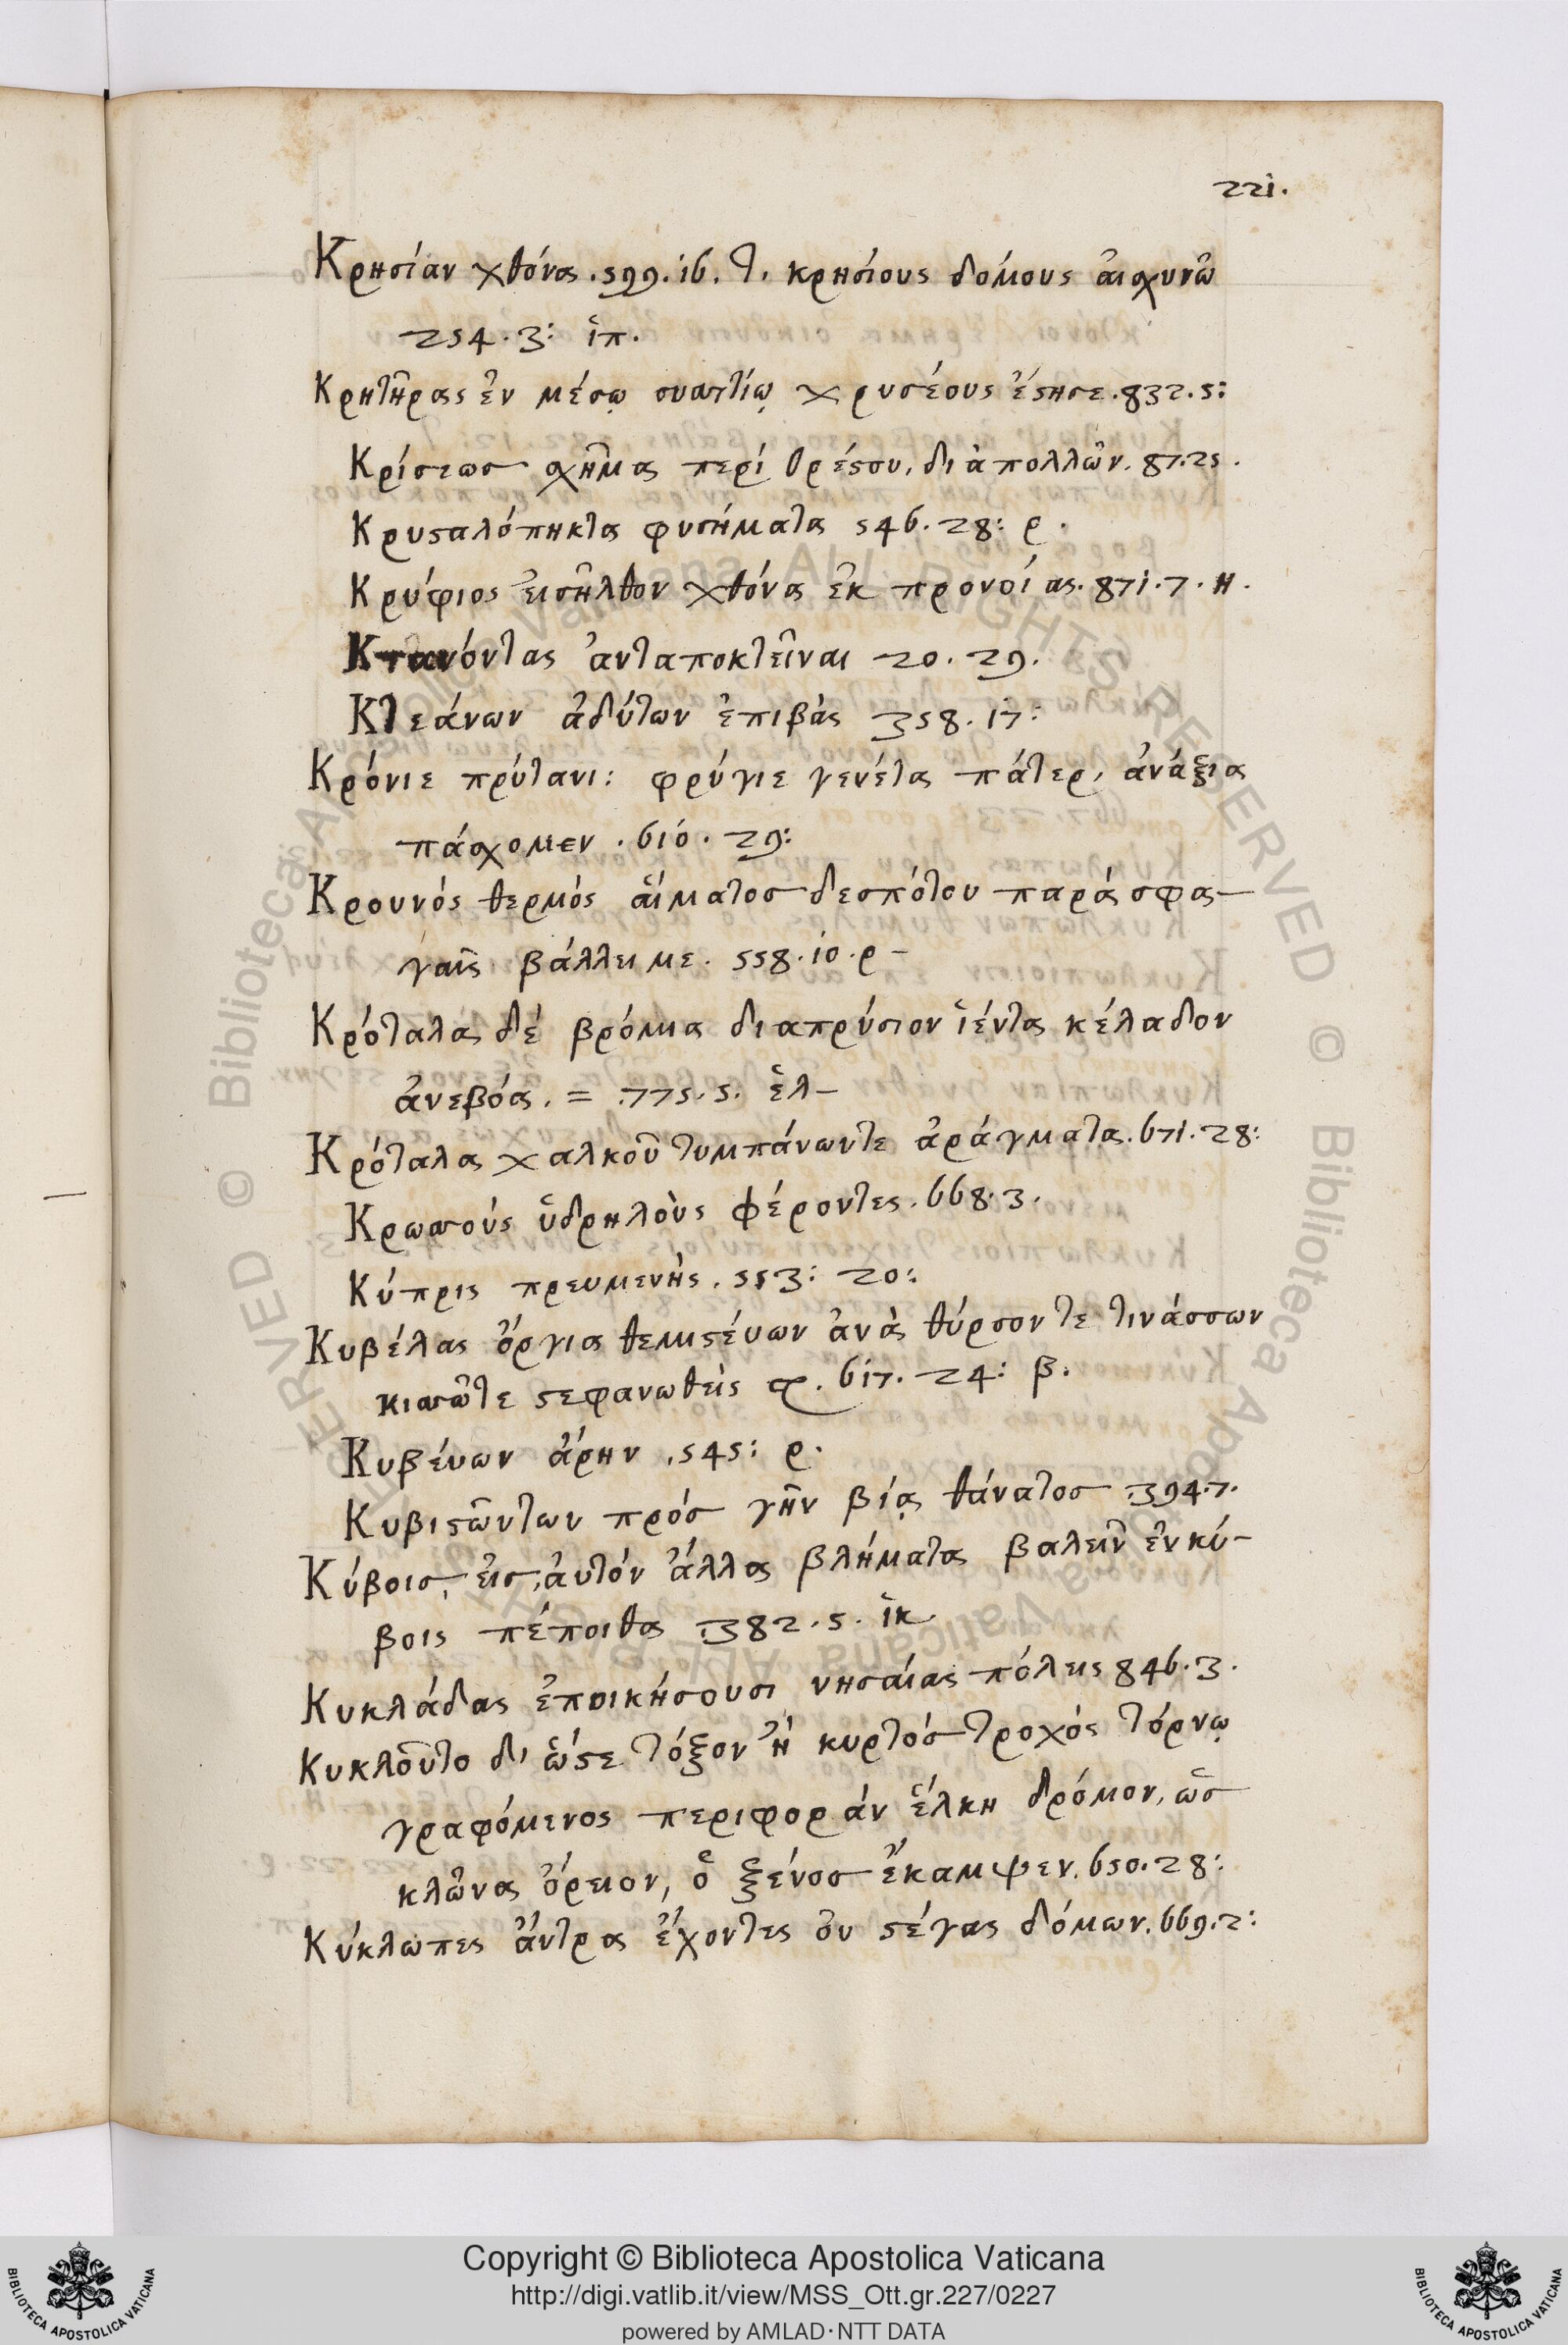 221.
Κρησίαν χθόνα. 599. 16. τ. κρησίους δόμους ἀισχυνῶ
254. 3: ἱπ.
Κρητῆρας ἐν μέσῳ συσσιτίῳ χρυσέους ἔστησε. 832. 5:
Κρίσεως σχῆμα περὶ ὀρέστου, δι ἀπολλῶν. 87. 25.
Κρυσταλόπηκτα φυσήματα 546. 28: ρ.
Κρύφιος εἰσῆλθον χθόνα ἐκ προνοίας. 871. 7. η.
Κτανόντας ἀνταποκτεῖναι 20. 29.
Κτεάνων ἀδύτων ἐπιβὰς 358. 17:
Κρόνιε πρύτανι: φρύγιε γενέτα πάτερ, ἀνάξια
πάσχομεν. 610. 29:
Κρουνός θερμός αἵματος δεσπότου παρά σφα-
γαῖς βάλλει με. 558. 10. ρ-
Κρόταλα δέ βρόμια διαπρύσιον ἱέντα κέλαδον
ἀνεβόα. = 775. 5. ἑλ-
Κρόταλα χαλκοῦ τυμπάνωντε ἀράγματα. 671. 28:
Κρωσσούς ὑδρηλοὺς φέροντες. 668. 3.
Κύπρις πρευμενὴς. 553: 20:
Κυβέλας ὄργια θεμιστέυων ἀνὰ θύρσοντε τινάσσων
κισσῶτε στεφανωθεὶς 617. 24: β.
Κυβέυων ἄρην. 545: ρ.
Κυβιστῶντων πρός γῆν βίᾳ θάνατος 394. 7.
Κύβοις, εἰς ἀυτόν ἄλλα βλήματα βαλεῖν ἐν κύ-
βοις πέποιθα 382. 5. ἱκ.
Κυκλάδας ἐποικήσουσι νησαίας πόλεις 846. 3.
Κυκλοῦτο δι ὥστε τόξον ἢ κυρτός τροχός τόρνῳ
γραφόμενος περιφοράν ἕλκη δρόμον, ὡς
κλῶνα ὄρειον, ὁ ξένος ἔκαμψεν. 650. 28:
Κύκλωπες ἄντρα ἔχοντες ὀυ στέγας δόμων. 669. 2:
Copyright © Biblioteca Apostolica Vaticana
http://digi.vatlib.it/view/MSS_Ott.gr.227/0227
powered by AMLAD·NTT DATA